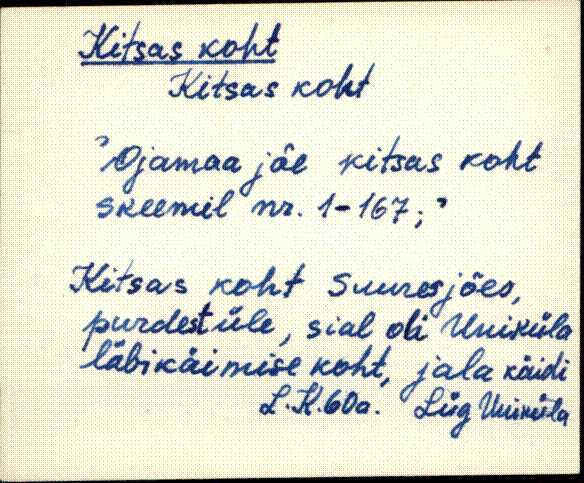 Kitsas koht
Kitsas koht
"Ojamaa jõe kitsas koht
skeemil nr. 1-167;"
Kitsas koht Suuresjões,
purdest üle, sial oli Uniküla
läbikäimise koht, jala käidi
L.K.60a. Lüg Uniküla